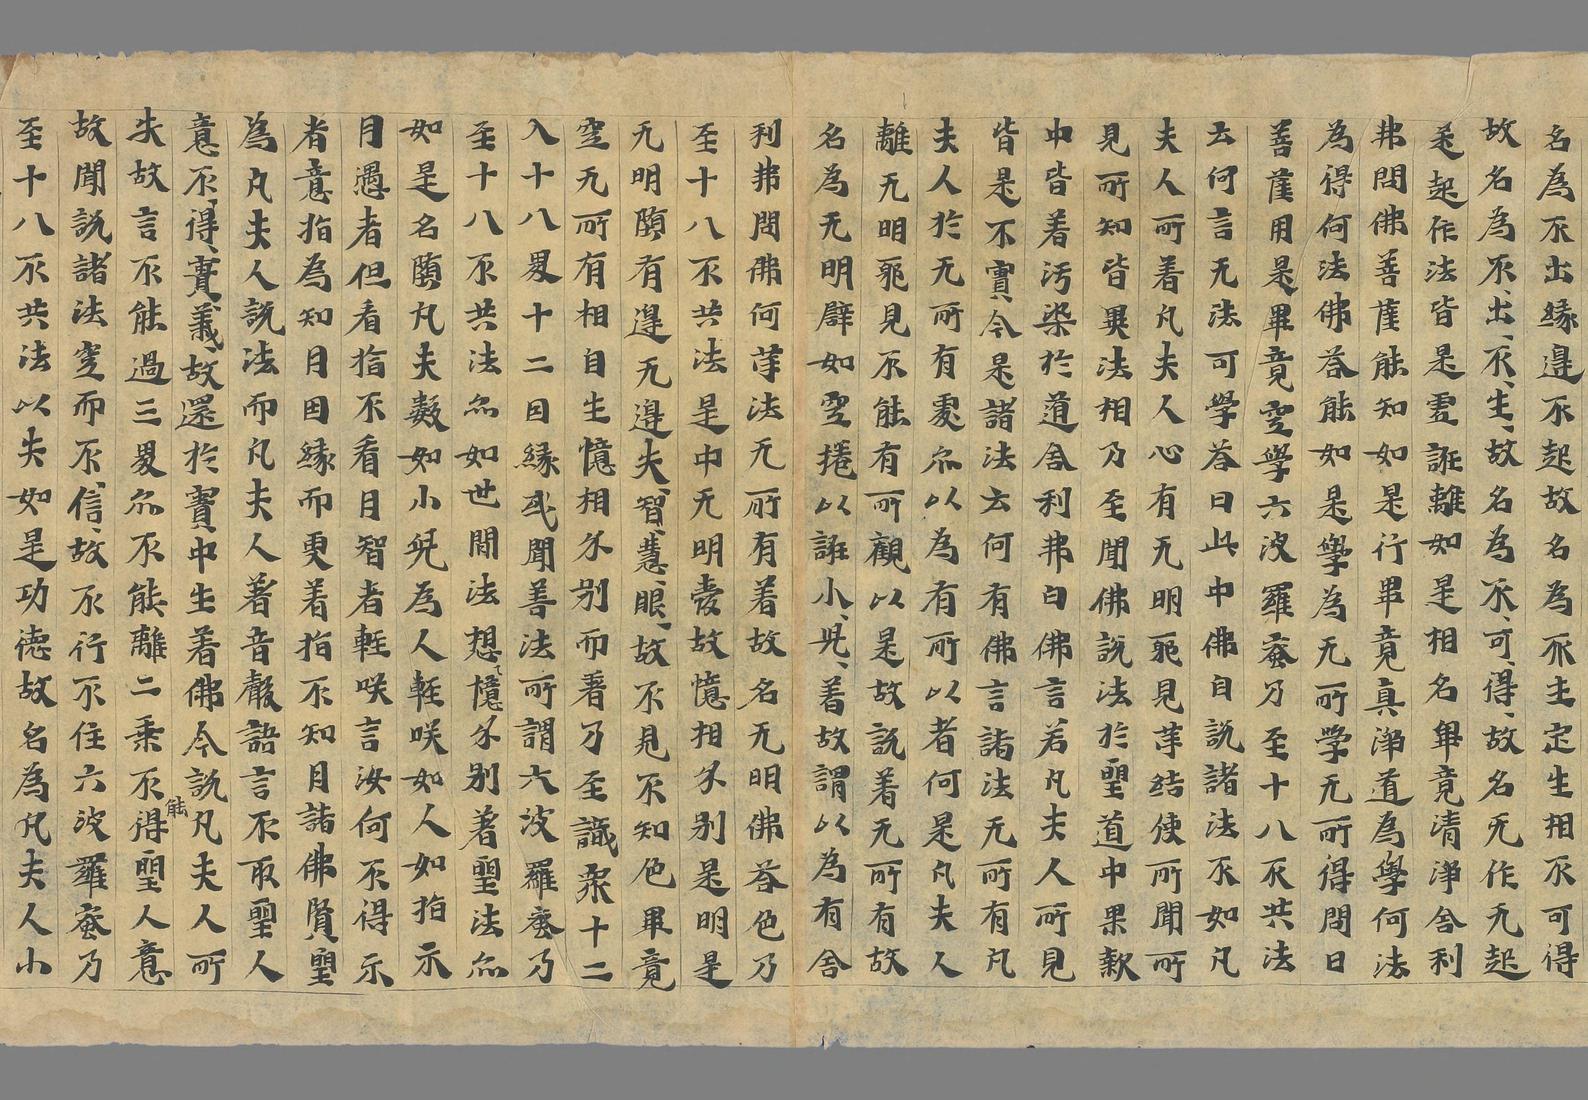 名為不出緣邊不起故名為不生定生相不可得
故名為不出不生故名為不可得故名无作无起
是起作法皆是虛誑離如是相名畢竟清淨舍利
弗問佛菩薩能知如是行畢竟真淨道為學何法
為得何法佛荅能如是學為无所學无所得問曰
菩薩用是畢竟空學六波羅蜜乃至十八不共法
云何言无法可學荅曰此中佛自說諸法不如凡
夫人所著凡夫人心有无明耶見等結使所聞所
見所知皆異法相乃至聞佛說法於聖道中果歎
中皆著汙染於道舍利弗白佛言若凡夫人所見
皆是不實今是諸法云何有佛言諸法无所有凡
夫人於无所有處亦以為有所以者何是凡夫人
離无明耶見不能有所觀以是故說著无所有故
名為无明譬如空捲以誑小兒著故謂以為有舍
利弗問佛何等法无所有著故名无明佛荅色乃
至十八不共法是中无明愛故憶相分別是明是
无明墮有邊无邊失智慧眼故不見不知色畢竟
空无所有相自生憶相分別而著乃至識眾十二
入十八界十二因緣或聞善法所謂六波羅蜜乃
至十八不共法亦如世間法想憶分別著聖法亦
如是名墮凡夫數如小兒為人輕咲如人如指示
月愚者但看指不看月智者輕咲言汝何不得示
者意指為知月因緣而更著指不知月諸佛賢聖
為凡夫人說法而凡夫人著音聲語言不取聖人
意不得實義故還於實中生著佛今說凡夫人所
失故言不能過三界亦不能離二乘不能得聖人意
故聞說諸法空而不信故不行不住六波羅蜜乃
至十八不共法以失如是功德故名為凡夫人小